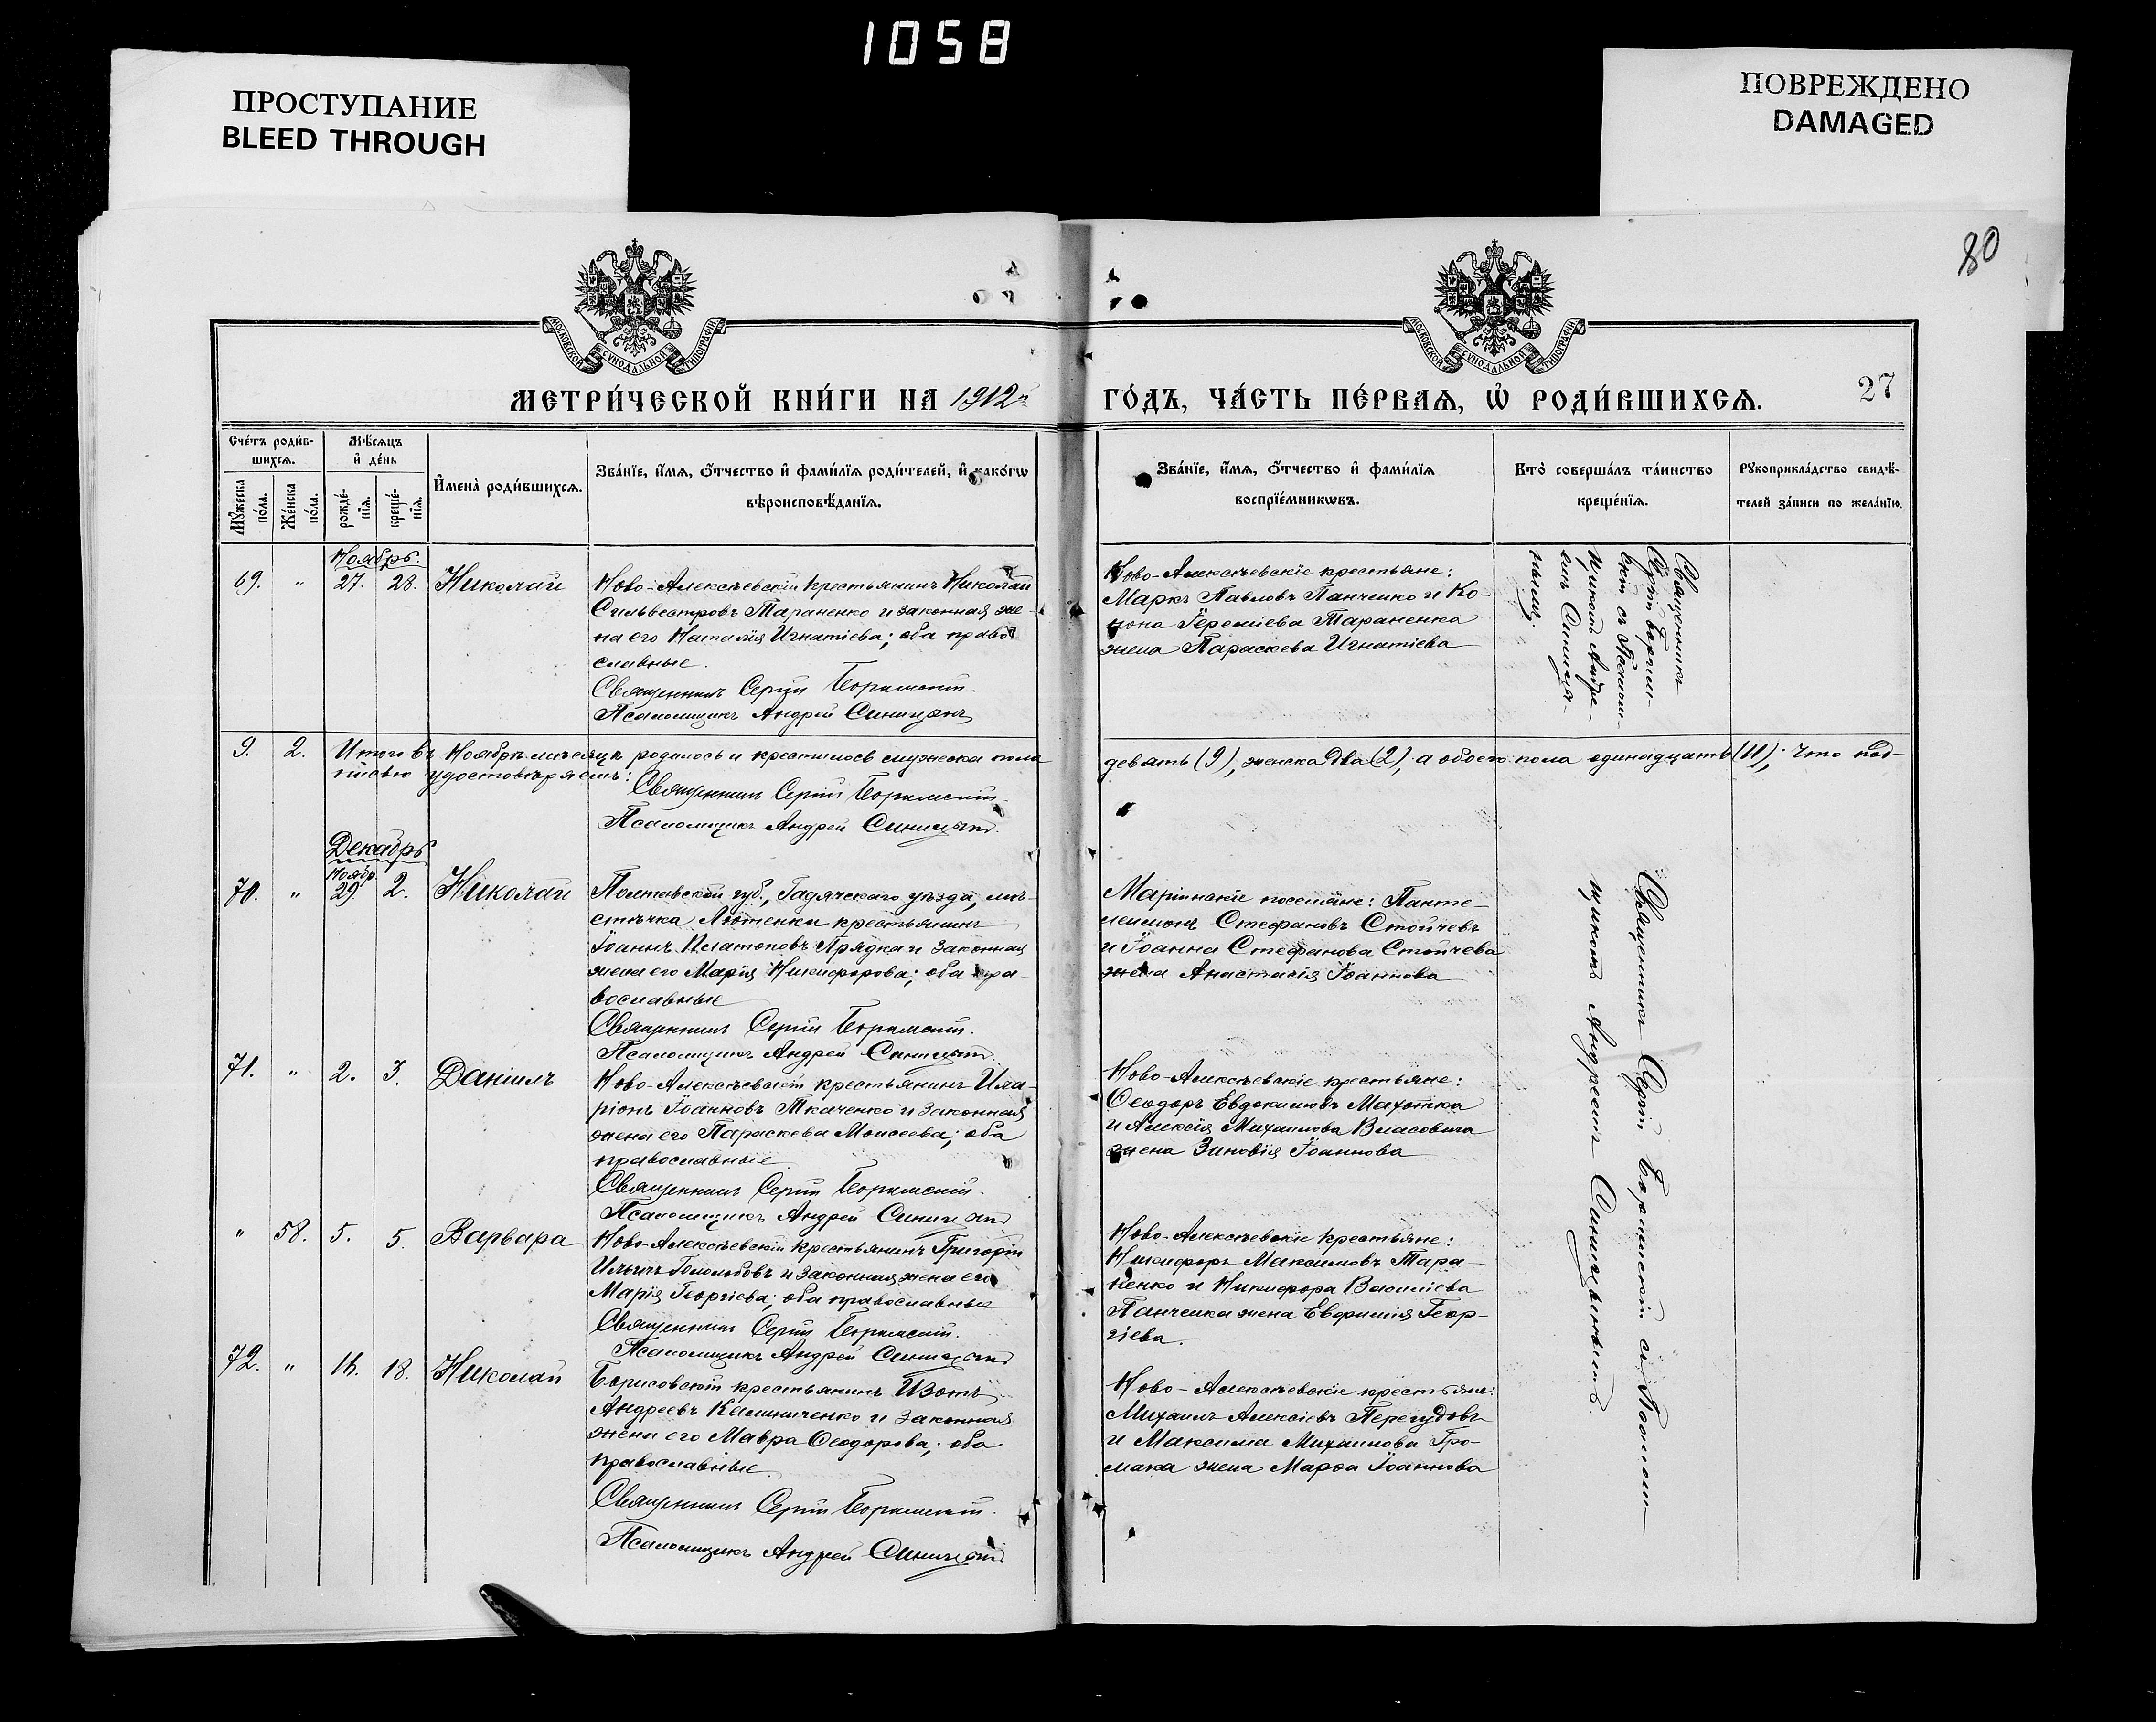 1058
ПРОСТУПАНИЕ
BLEED THROUGH
ПОВРЕЖДЕНО
DAMAGED
80
МОСКОВСКОЙ СѴНОДАЛЬНОЙ ТИПОГРАФІИ
МОСКОВСКОЙ СѴНОДАЛЬНОЙ ТИПОГРАФІИ
МЕТРИ́ЧЕСКОЙ КНИ́ГИ НА 1912й
ГО́ДЪ, ЧА́СТЬ ПЕ́РВАѦ, Ѡ҆ РОДИ́ВШИХСѦ.
27
Сче́тъ роди́в-
шихсѧ.
Мѣ́сѧцъ
и҆ де́нь
Мꙋ́жеска
по́ла.
Же́нска
по́ла.
рожде́-
нїѧ.
креще́-
нїѧ.
И҆мена̀ роди́вшихсѧ.
Зва́нїе, и҆́мѧ, ѻ҆́тчество и҆ фами́лїѧ роди́телей, и҆ како́гѡ
вѣроисповѣ́данїѧ.
Зва́нїе, и҆́мѧ, ѻ҆́тчество и҆ фами́лїѧ
воспрїе́мникѡвъ.
Кто̀ соверша́лъ та́инство
креще́нїѧ.
Рꙋкоприкла́дство свидѣ́-
телей за́писи по жела́нїю.
Ноябрь.
69. " 27. 28. Николай
Ново-Алексѣевскій крестьянинъ Николай
Сильвестровъ Тараненко и законная же-
на его Наталія Игнатіева; оба право
славные.
Священникъ Сергій
Псаломщикъ Андрей Синицынъ
Ново-Алексѣевскіе крестьяне:
Маркъ Павловъ Панченко и Ко-
нона Іереміева Тараненка
жена Параскева Игнатіева
Священникъ
Сергій
скій съ Псалом-
щикомъ Андре-
емъ Синицы-
нымъ.
9. 2. Итого въ Ноябрѣ мѣсяцѣ родилось и крестилось мужеска пола
девять (9), женска два (2), а обоего пола одинадцать (11), что под-
писью удостовѣряемъ:
Священникъ Сергій
Псаломщикъ Андрей Синицынъ.
Декабрь
Ноябр.
70. " 29. 2. Николай
Полтавской губ., Гадячскаго уѣзда, мѣ-
стечка Лютенки крестьянинъ
Іоаннъ Платоновъ Прядка и законная
жена его Марія Никифорова; оба пра-
вославные
Священникъ Сергій
Псаломщикъ Андрей Синицынъ.
Маріинскіе поселяне: Панте-
леимонъ Стефановъ Стойчевъ
и Іоанна Стефанова Стойчева
жена Анастасія Іоаннова
71. " 2. 3. Даніилъ
Ново-Алексѣевскій крестьянинъ Ила-
ріонъ Іоанновъ Ткаченко и законная
жена его Параскева Моисеева; оба
православные
Священникъ Сергій
Псаломщикъ Андрей Синицынъ
Ново-Алексѣевскіе крестьяне:
Ѳеодоръ Евдокимовъ Махотка
и Алексія Михаилова Власовича
жена Зиновія Іоаннова
" 58. 5. 5. Варвара
Ново-Алексѣевскій крестьянинъ Григорій
Ильичъ и законная жена его
Марія Георгіева; оба православные
Священникъ Сергій
Псаломщикъ Андрей Синицынъ
Ново-Алексѣевскіе крестьяне:
Никифоръ Максимовъ Тара-
ненко и Никифора Василіева
Панченка жена Евфимія Геор-
гіева.
72. " 16. 18. Николай
Борисовскій крестьянинъ Изотъ
Андреевъ Калиниченко и законная
жена его Мавра Ѳеодорова; оба
православные.
Священникъ Сергій
Псаломщикъ Андрей Синицынъ
Ново-Алексѣевскіе крестьяне:
Михаилъ Алексіевъ Перегудовъ
и Максима Михаилова Гро-
мака жена Марѳа Іоаннова
Священникъ Сергій съ Псалом-
щикомъ Андреемъ Синицынымъ.